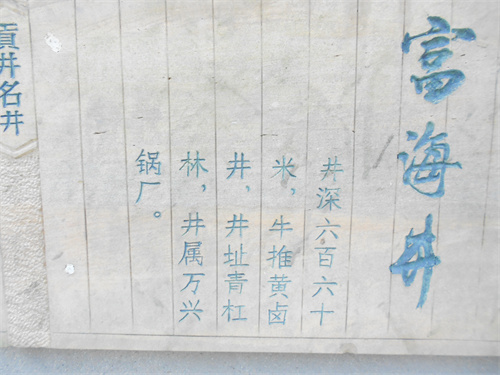 富海井
井深六百六十
米，牛推黄卤
井，井址青杠
林，井属万兴
锅厂。
貢井名井